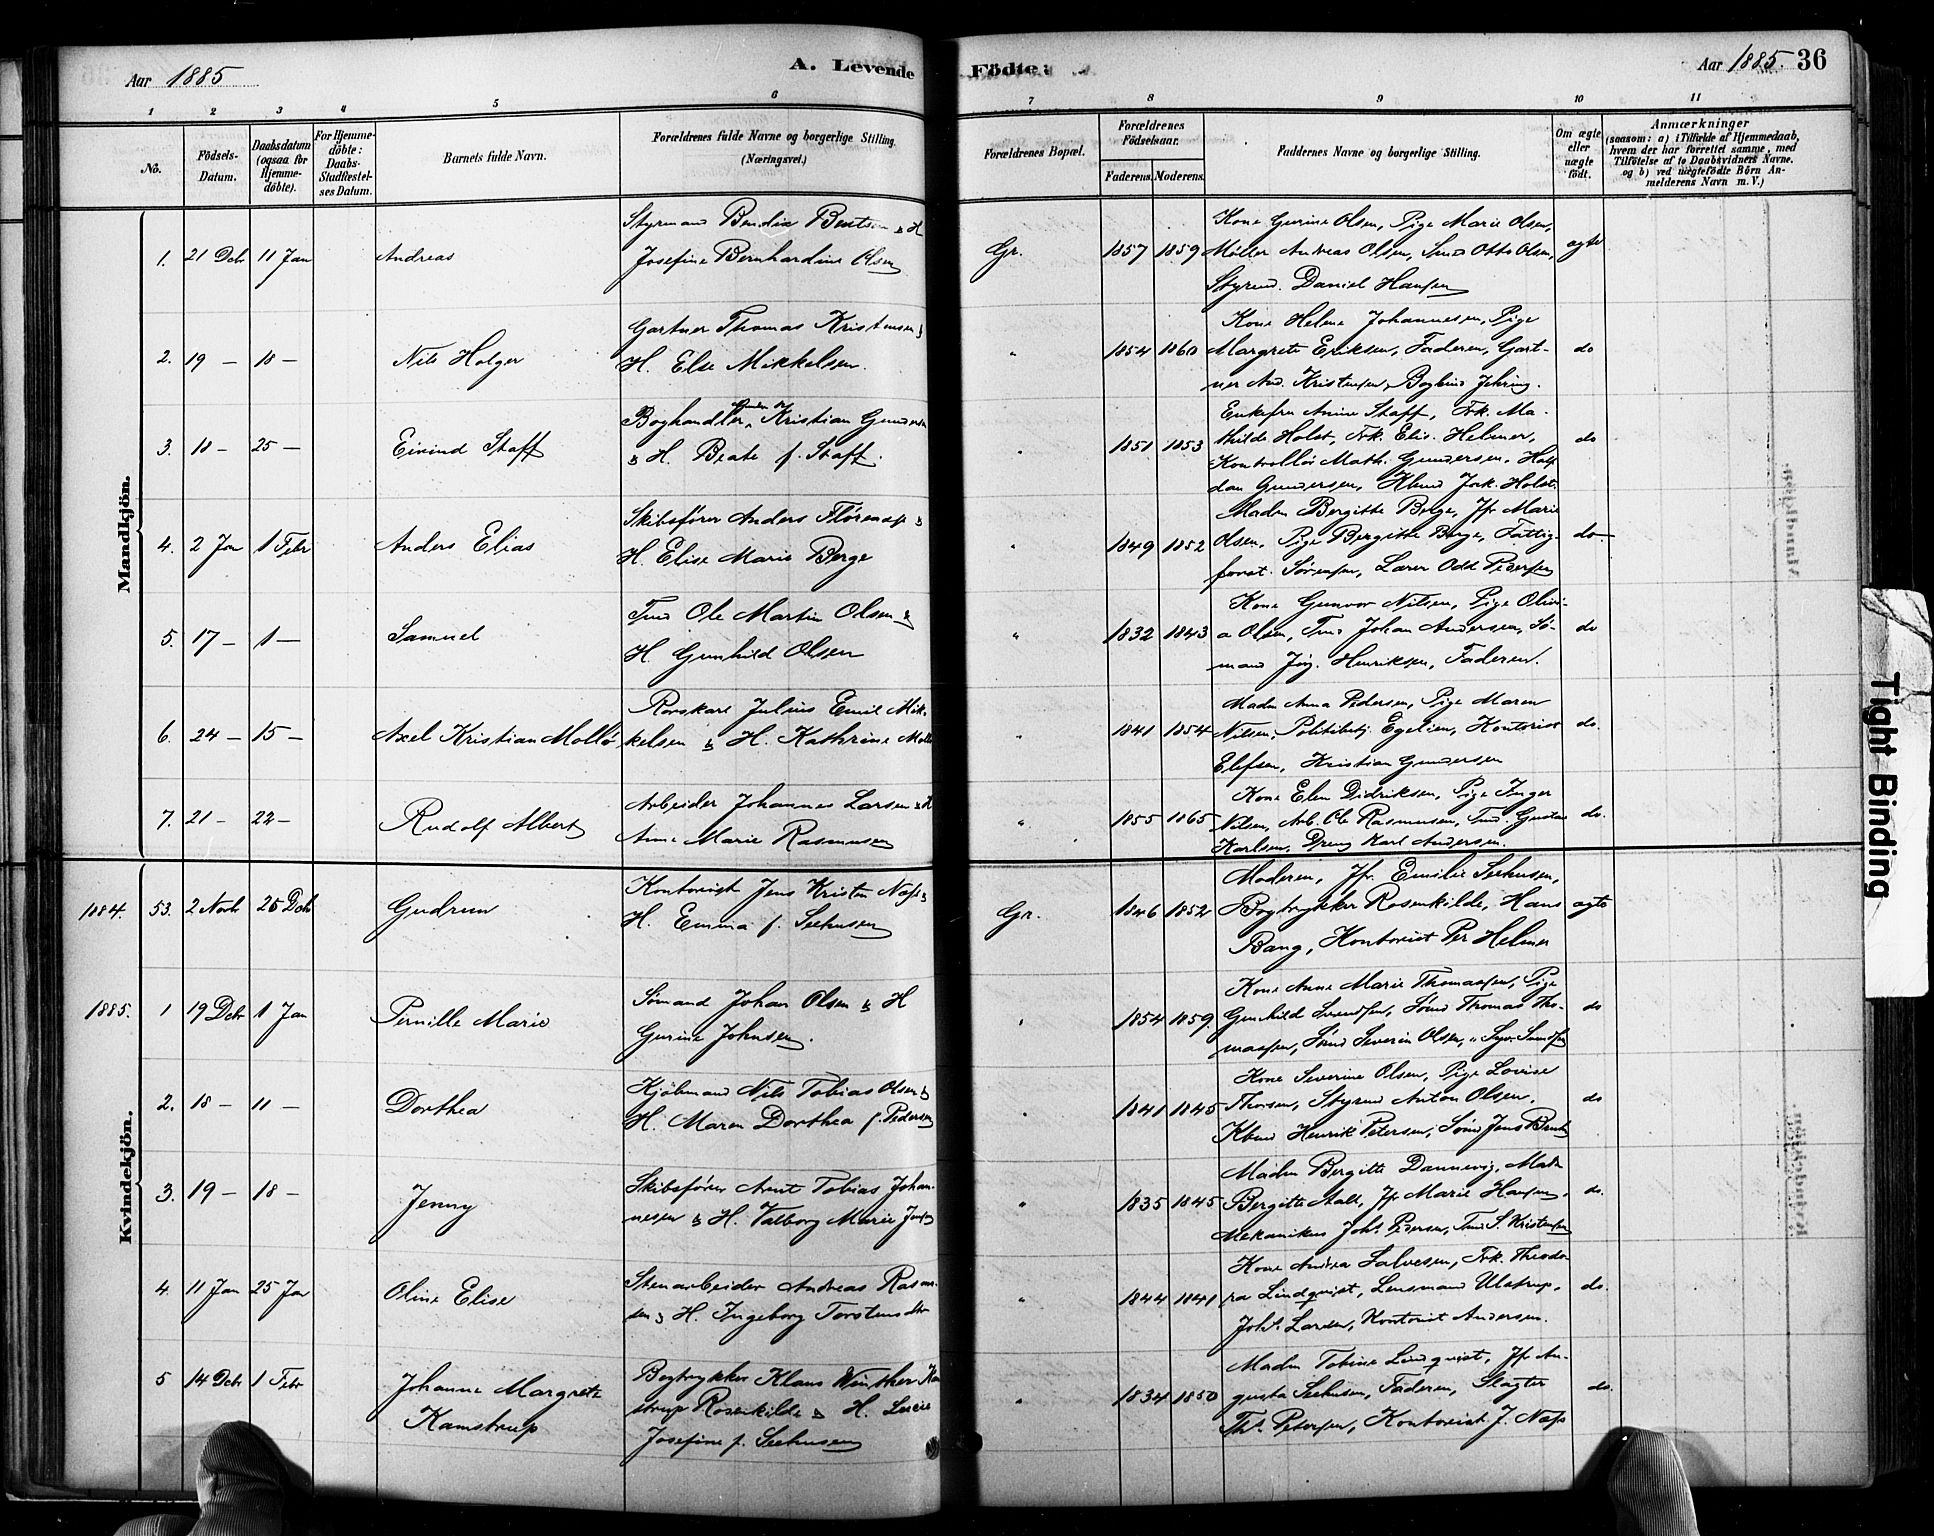 Aar 1885
A. Levende
Födte
Aar 1885.
36
1 2 3 4 5 6 7 8 9 10 11
No.
Födsels-Datum.
Daabsdatum (ogsaa for Hjemme-döbte).
For Hjemme-döbte: Daabs-Stadfæstel-ses Datum.
Barnets fulde Navn.
Forældrenes fulde Navne og borgerlige Stilling. (Næringsvei.)
Forældrenes Bopæl.
Forældrenes Födselsaar.
Faderens. Moderens.
Faddernes Navne og borgerlige Stilling.
Om ægte eller uægte födt.
Anmærkninger
(saasom: a) i Tilfælde af Hjemmedaab,
hvem der har forrettet samme, med
Tilföielse af to Daabsvidners Navne,
og b) ved uægtefödte Börn An-
melderens Navn m. V.)
Mandkjön.
1. 21 Dcbr 11 Jan Andreas
Styrmand Bendix Bentsen & H
Josefine Bernhardine Olsen
Gr. 1857 1859
Kone Gurine Olsen, Pige Marie Olsen,
Møller Andreas Olsen, Tmd Otto Olsen,
Styrmd. Daniel Hansen
ægte
2. 19 — 18 — Nils Holger
Gartner Thomas Kristensen &
H. Else Mikkelsen.
" 1854 1860
Kone Helene Johannesen, Pige
Margrete Eriksen, Faderen, Gart-
ner And. Kristensen, Bogbind Jehring.
do
3. 18 — 25 — Eivind Staff
Boghandler Kristian Gundersen
& H. Beate f. Staff.
" 1851 1853
Enkefru Anine Staff, Frk. Ma-
thilde Holst, Frk. Elis. Helmer,
Kontrollør Math. Gundersen, Half
dan Gundersen, Kbmd Jock. Holst.
do
4. 2 Jan 1 Febr Anders Elias
Skibsfører Anders Flørenæs &
H. Elise Marie Berge
" 1849 1852
Madm Bergitte Berge, Jfr Marie
Olsen, Pige Bergitte Berge, Fattig-
forst. Sørensen, Lærer Odd Pedersen
do
5. 17 — 1 — Samuel
Tmd Ole Martin Olsen &
H. Gunhild Olsen
" 1832 1843
Kone Gunvor Nilsen, Pige Olivi-
a Olsen, Tmd Johan Andersen, Sø-
mand Jørg. Henriksen, Faderen.
do
6. 24 — 15 — Axel Kristian Mollö
Rorskarl Julius Emil Mik-
kelsen & H. Kathrine Mollö
" 1841 1854
Madm Anna Pedersen, Pige Maren
Nilsen, Politibetj. Egelien, Kontorist
Elefsen, Kristian Gundersen
do.
7. 21 — 22 — Rudolf Albert
Arbeider Johannes Larsen & H
Anne Marie Rasmussen
" 1855 1865
Kone Elen Didriksen, Pige Inger
Nilsen, Arb. Ole Rasmussen, Tmd. Gustav
Karlsen, Dreng Karl Andersen.
do.
Kvindekjön.
1884. 53. 2 Novb 26 Dcbr Gudrun
Kontorist Jens Kristen Næss &
H. Emma f. Seehusen
Gr. 1846 1852
Moderen, Jfr. Emilie Seehusen,
Bogtrykker Rosenkilde, Hans
Bang, Kontorist Per Helmer
ægte
1885. 1 19 Dcbr 1 Jan Pernille Marie
Sømand Johan Olsen & H
Gurine Johnsen.
" 1854 1859.
Kone Anne Marie Thomassen, Pige
Gunhild Svendsen, Sømd Thomas Tho-
massen, Sømd Severin Olsen,
do
2. 18 — 11 — Dorthea
Kjøbmand Nils Tobias Olsen &
H. Maren Dorthea f. Pedersen
" 1841 1845
Kone Severine Olsen, Pige Lovise
Thorsen, Styrmd Anton Olsen,
Kbmd Henrik Petersen, Sømd Jens Bentsen
do
3. 19 — 18 — Jenny
Skibsfører Arnt Tobias Johan-
nesen & H. Valborg Marie Jensen
" 1835 1845
Madm Bergitte Dannevig, Mad
Bergitte Aall, Jfr Marie Hansen,
Mekanikus Johs. Pedersen, Tmd S. Kristensen
do.
4. 11 Jan 25 Jan Oline Elise
Stenarbeider Andreas Rasmus-
sen & H. Ingeborg Torstensdtr
" 1844 1841
Kone Andrea Salvesen, Frk. Theodo-
ra Lindqvist, Lensmand Ulstrup,
Johs. Larsen, Kontorist Andersen.
do.
5 14 Dcbr 1 Febr Johanne Margrete
Kamstrup
Bogtrykker Klaus Winther Kam
strup Rosenkilde & H. Lucie
Josefine f. Seehusen
" 1834 1850
Madm Tobine Lindqvist, Jfr Au-
gusta Seehusen, Faderen, Slagter
Ths. Petersen, Kontorist J. Næss
do.
Tight Binding